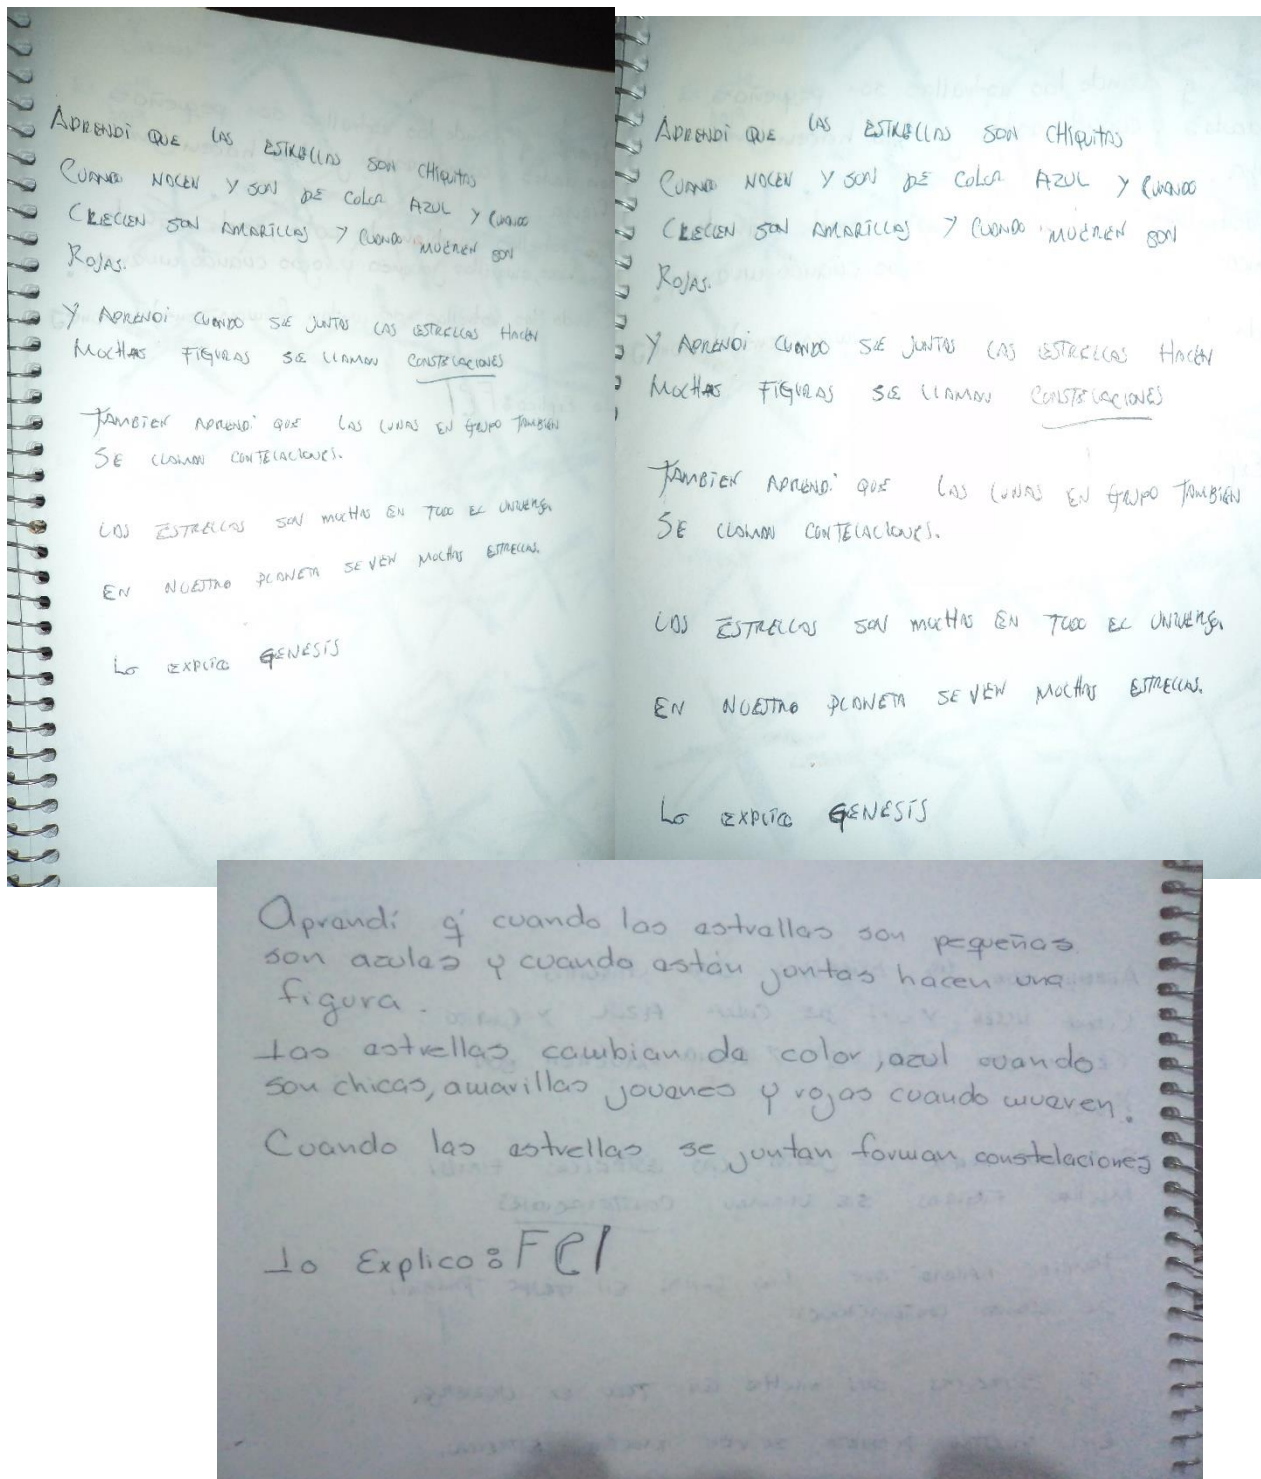 APRENDI QUE LAS ESTRELLAS SON CHIQUITAS
CUANDO NACEN Y SON DE COLOR AZUL Y CUANDO
CRECEN SON AMARILLAS Y CUANDO MUEREN SON
ROJAS.
Y APRENDI CUANDO SE JUNTAS LAS ESTRELLAS HACEN
MUCHAS FIGURAS SE LLAMAN CONSTELACIONES
TAMBIEN APRENDI QUE LAS LUNAS EN GRUPO TAMBIEN
SE LLAMAN CONTELACIONES.
LAS ESTRELLAS SON MUCHAS EN TODO EL UNIVERSO.
EN NUESTRO PLANETA SE VEN MUCHAS ESTRELLAS.
LO EXPLICO GENESIS
APRENDI QUE LAS ESTRELLAS SON CHIQUITAS
CUANDO NACEN Y SON DE COLOR AZUL Y CUANDO
CRECEN SON AMARILLAS Y CUANDO MUEREN SON
ROJAS.
Y APRENDI CUANDO SE JUNTAS LAS ESTRELLAS HACEN
MUCHAS FIGURAS SE LLAMAN CONSTELACIONES
TAMBIEN APRENDI QUE LAS LUNAS EN GRUPO TAMBIEN
SE LLAMAN CONTELACIONES.
LAS ESTRELLAS SON MUCHAS EN TODO EL UNIVERSO.
EN NUESTRO PLANETA SE VEN MUCHAS ESTRELLAS.
LO EXPLICO GENESIS
Aprendí q' cuando las estrellas son pequeñas
son azules y cuando están juntas hacen una
figura.
Las estrellas cambian de color, azul cuando
son chicas, amarillas jovenes y rojas cuando mueren.
Cuando las estrellas se juntan forman constelaciones
Lo Explico: FEl